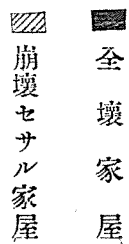 全壞家屋
崩壞セサル家屋